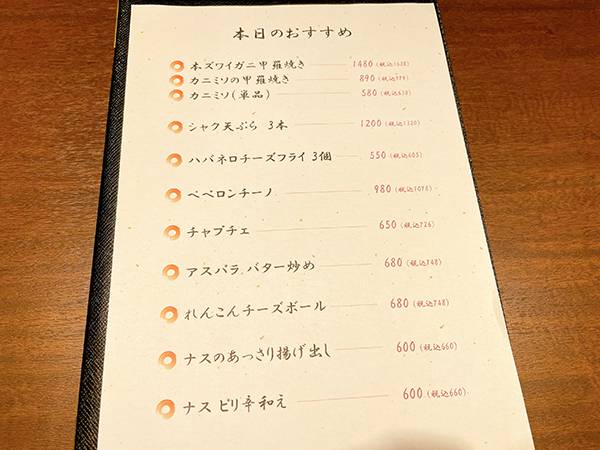 本日のおすすめ
本ズワイガニ甲羅焼き 1480(税込1628)
カニミソの甲羅焼き 890(税込979)
カニミソ(単品) 580(税込638)
シャク天ぷら 3本 1200(税込1320)
ハバネロチーズフライ 3個 550(税込605)
ペペロンチーノ 980(税込1078)
チャプチェ 650(税込726)
アスパラ バター炒め 680(税込748)
れんこんチーズボール 680(税込748)
ナスのあっさり揚げ出し 600(税込660)
ナス ピリ辛和え 600(税込660)